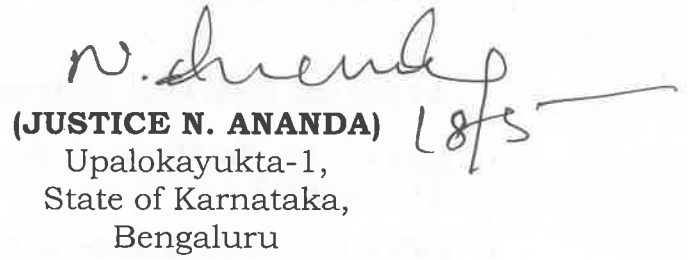 N. Ananda
(JUSTICE N. ANANDA) 18/5
Upalokayukta-1,
State of Karnataka,
Bengaluru